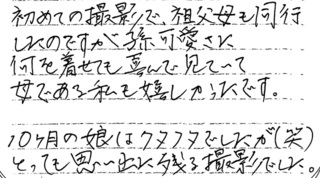 初めての撮影で、祖父母も同行
したのですが孫可愛さに
何を着せても喜んで見ていて
母である私も嬉しかったです。
10ヶ月の娘はクタクタでしたが(笑)
とっても思い出に残る撮影でした。